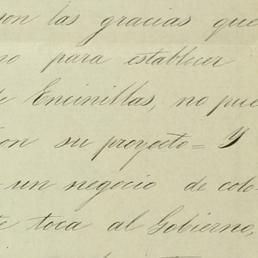 son las gracias que
no para establecer
de Encinillas, no pue
con su proyecto = y
un negocio de colo-
te toca al Gobierno,